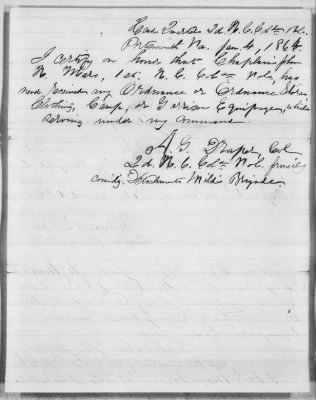 Head Quarters 2d. N.C. Cold. Vols.
Portsmouth Va. Jan. 4, 1864.
I certify on honor that Chaplain John
N. Mars, 1st. N.C. Cold. Vols, has
never received any Ordnance or Ordnance Stores
Clothing, Camp, or Garrison Equipage, while
serving under my command.
A. G. Draper Col
2d. N.C. Cold Vols. formerly
comdg. Detachments Wild's Brigade